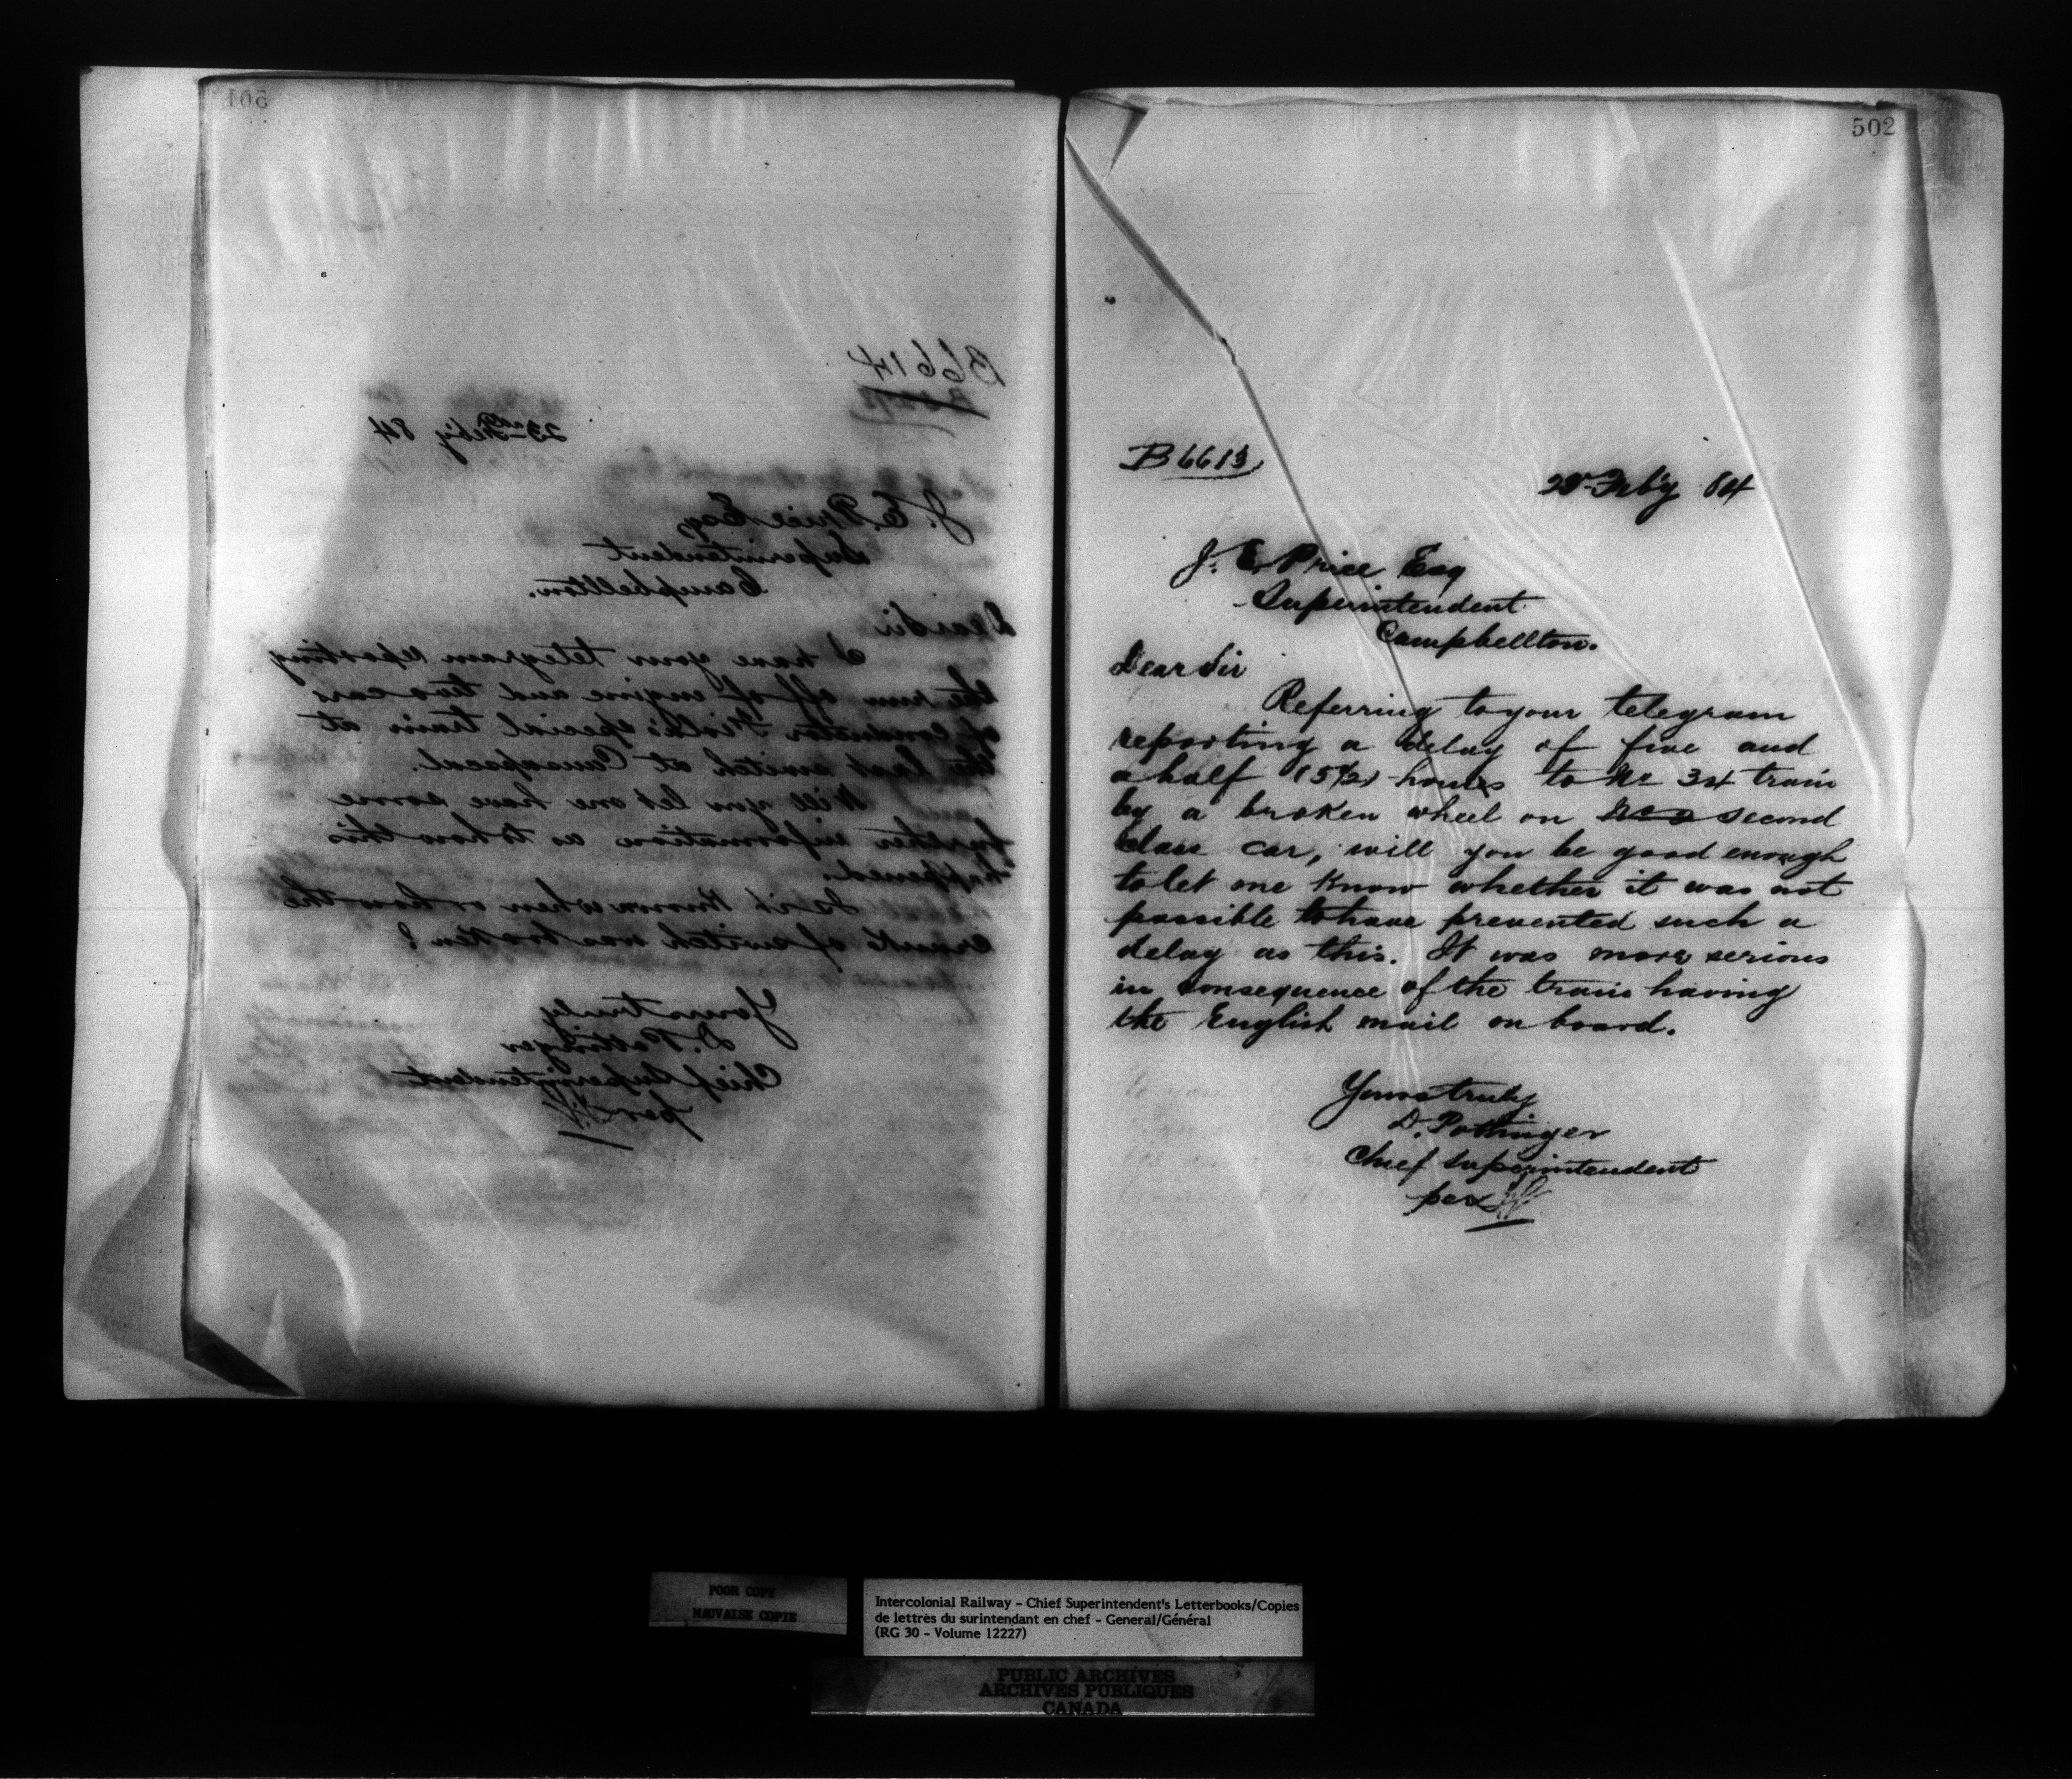 501
B6614
23rd Feb'y 84
J. E. Price Esq
Superintendent
Campbellton.
Dear Sir
I have your telegram reporting
the run off of engine and two cars
of Conductor special train at
the last switch at Causapscal.
Will you let me have some
further information as to how this
happened.
Is it known when or how the
crank of switch was broken?
Yours truly
D. Pottinger
Chief Superintendent
per
502
B6613
Feb'y 84
J. E. Price Esq
Superintendent
Campbellton.
Dear Sir
Referring to your telegram
reporting a delay of five and
a half (5 1/2) hours to No 34 train
by a broken wheel on second
class car, will you be good enough
to let me know whether it was not
possible to have prevented such a
delay as this. It was more serious
in consequence of the train having
the English mail on board.
Yours truly
D. Pottinger
Chief Superintendent
per
POOR COPY
MAUVAISE COPIE
Intercolonial Railway - Chief Superintendent's Letterbooks/Copies
de lettres du surintendant en chef - General/Général
(RG 30 - Volume 12227)
PUBLIC ARCHIVES
ARCHIVES PUBLIQUES
CANADA